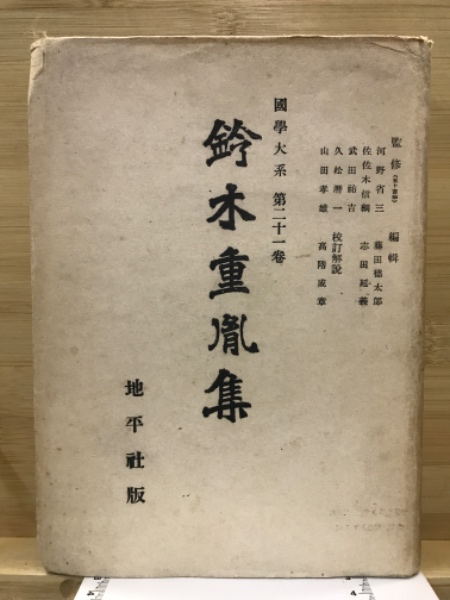 監修(五十音順)
河野省三
佐佐木信綱
武田祐吉
久松潜一
山田孝雄
編輯
藤田徳太郎
志田延義
校訂解説
高階成章
國學大系 第二十一卷
鈴木重胤集
地平社版